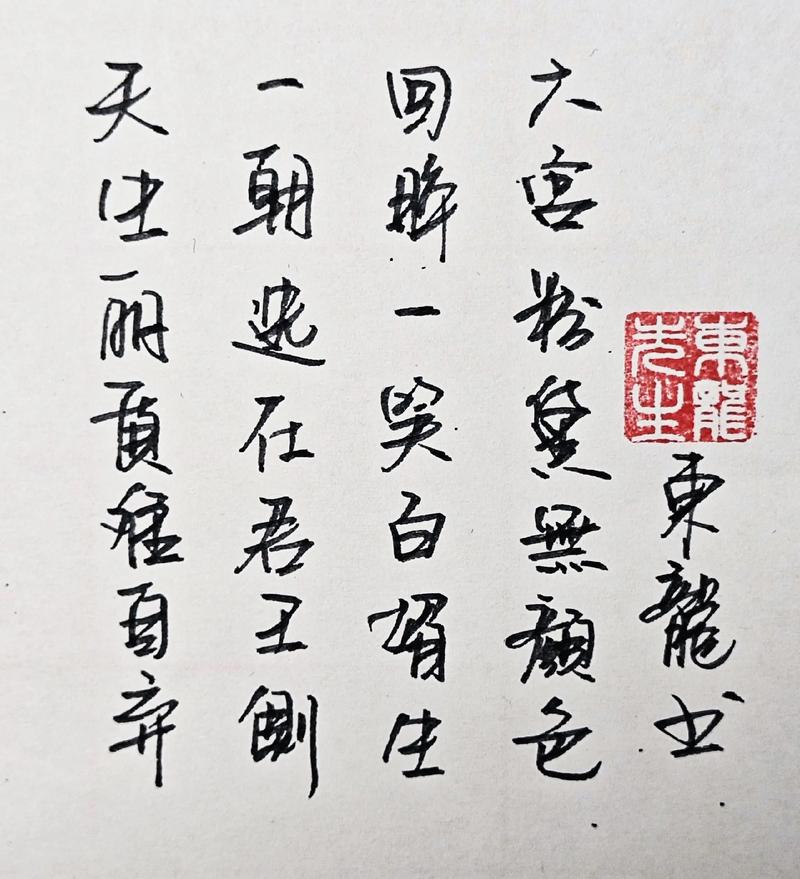 天生丽質難自弃
一朝选在君王側
回眸一笑百媚生
六宫粉黛無顏色
東龍先生
東龍书